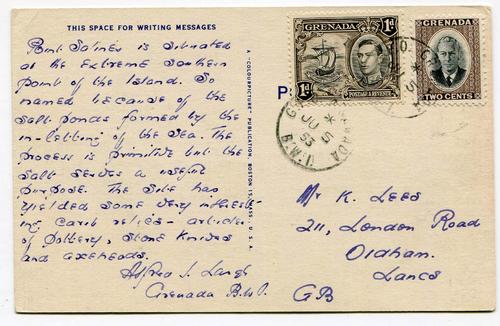 THIS SPACE FOR WRITING MESSAGES
Point Salines is situated
at the extreme southern
point of the Island. So
named because of the
salt ponds formed by the
in-letting of the sea. The
process is primitive but the
salt serves a useful
purpose. The site has
yielded some very interest-
ing carib relics - articles
of pottery, stone knives
and axeheads.
Grenada B.W.I.
A COLOURPICTURE PUBLICATION BOSTON 15, MASS., U.S.A.
P
GRENADA
1d
1d
POSTAGE & REVENUE
GRENADA
TWO CENTS
GRENADA
JU 5
53
B.W.I.
Mr K. Lees
211, London Road
Oldham.
Lancs
GB